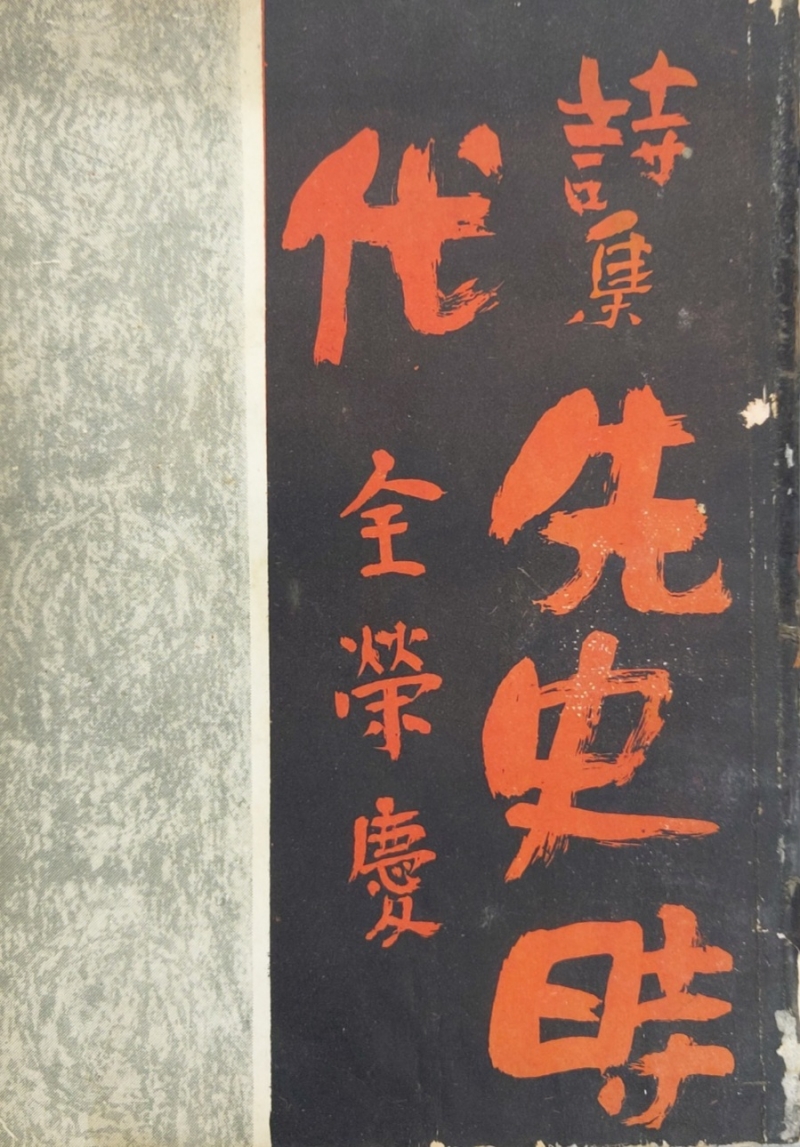 詩集
先史時
代
全榮慶